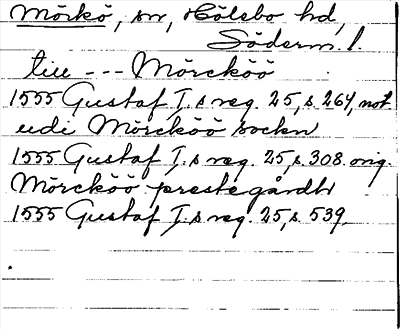 Mörkö, sn, Hölebo hd,
Söderm. l.
till --- Mörcköö
1555 Gustaf I:s reg. 25, s. 264, not.
udi Mörcköö sockn
1555 Gustaf I:s reg. 25, s. 308. orig.
Mörcköö prestegårdh
1555 Gustaf I:s reg. 25, s. 539.